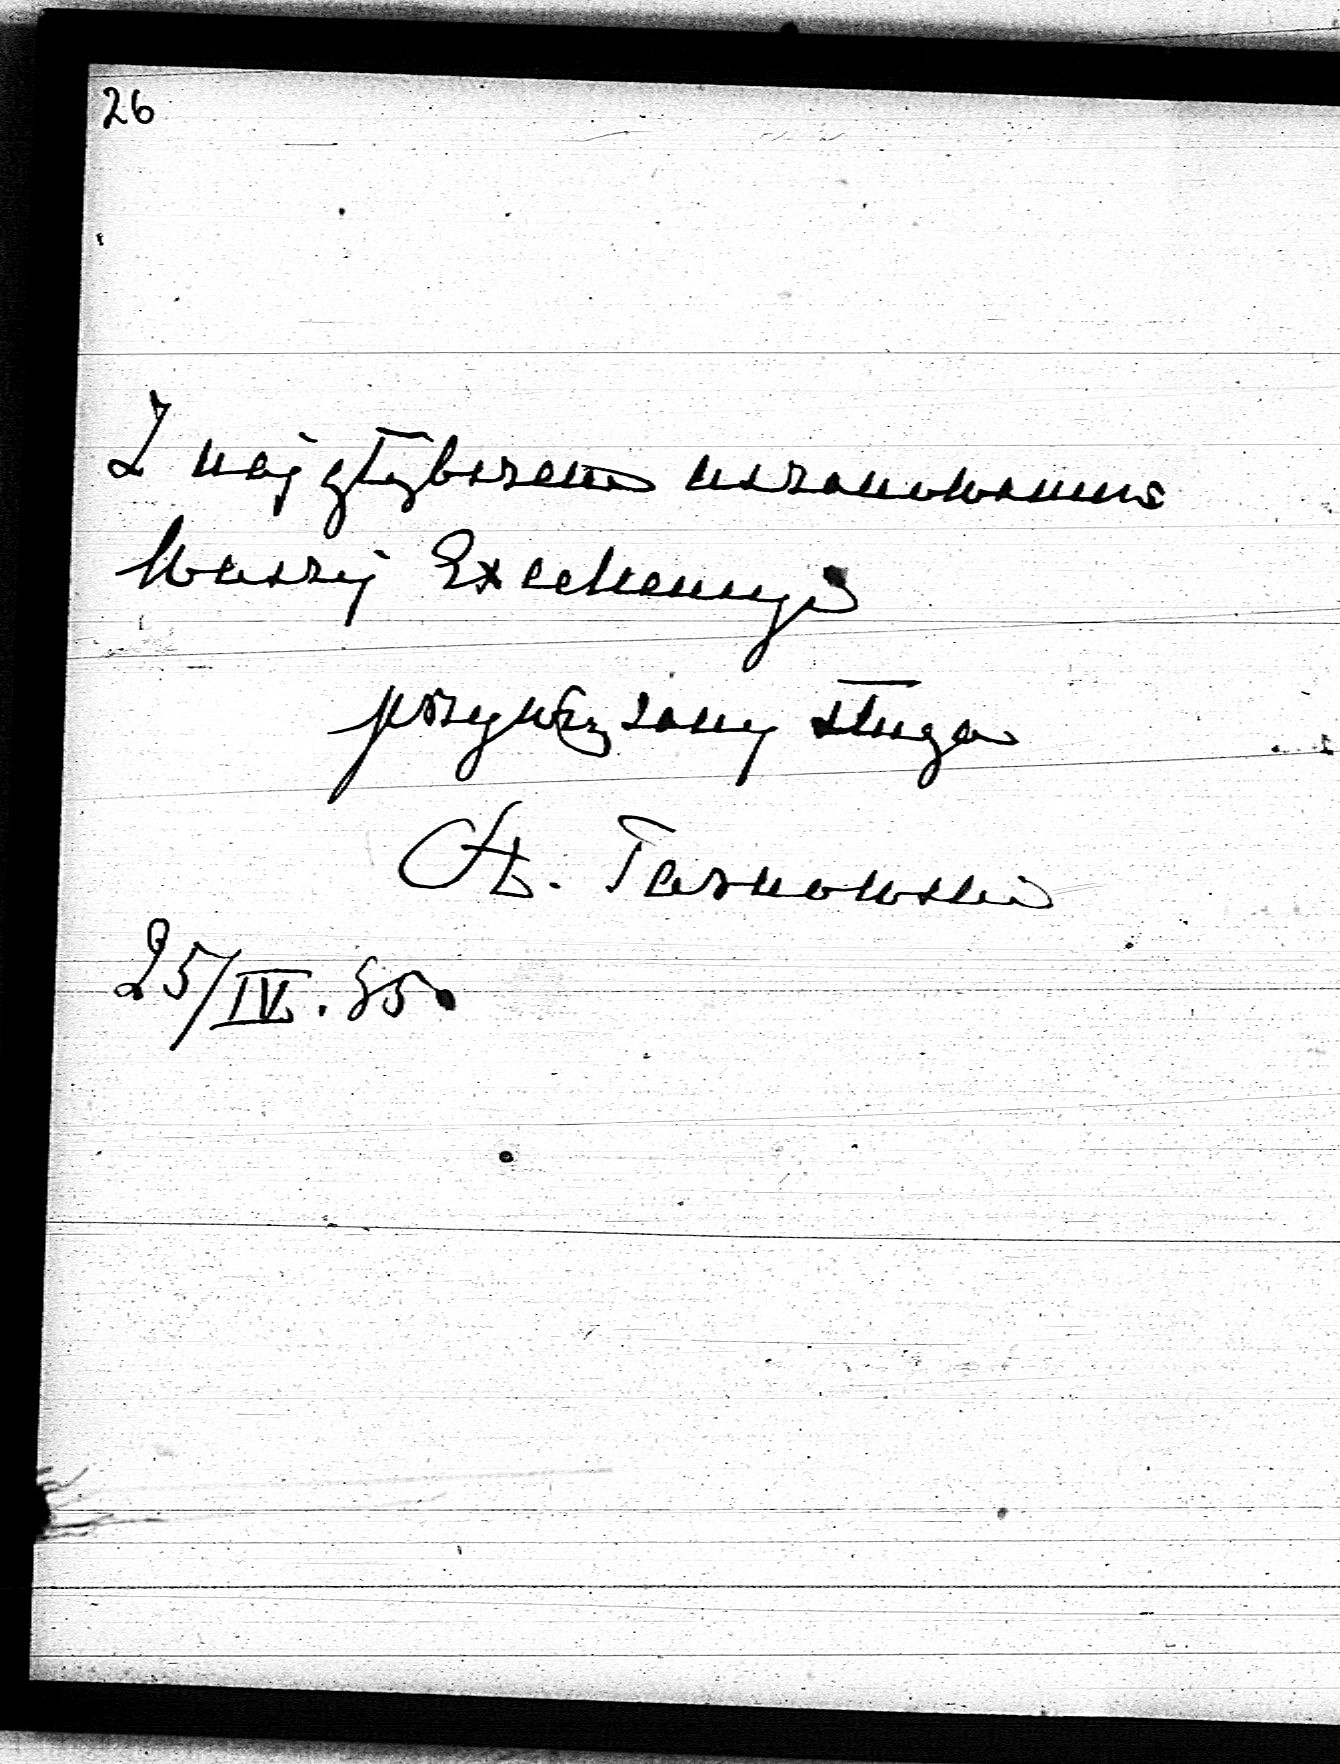 26
Z najgłębszem uszanowaniem
Waszej Excellencyi
przywiązany sługa
St. Tarnowski
25/IV. 85.